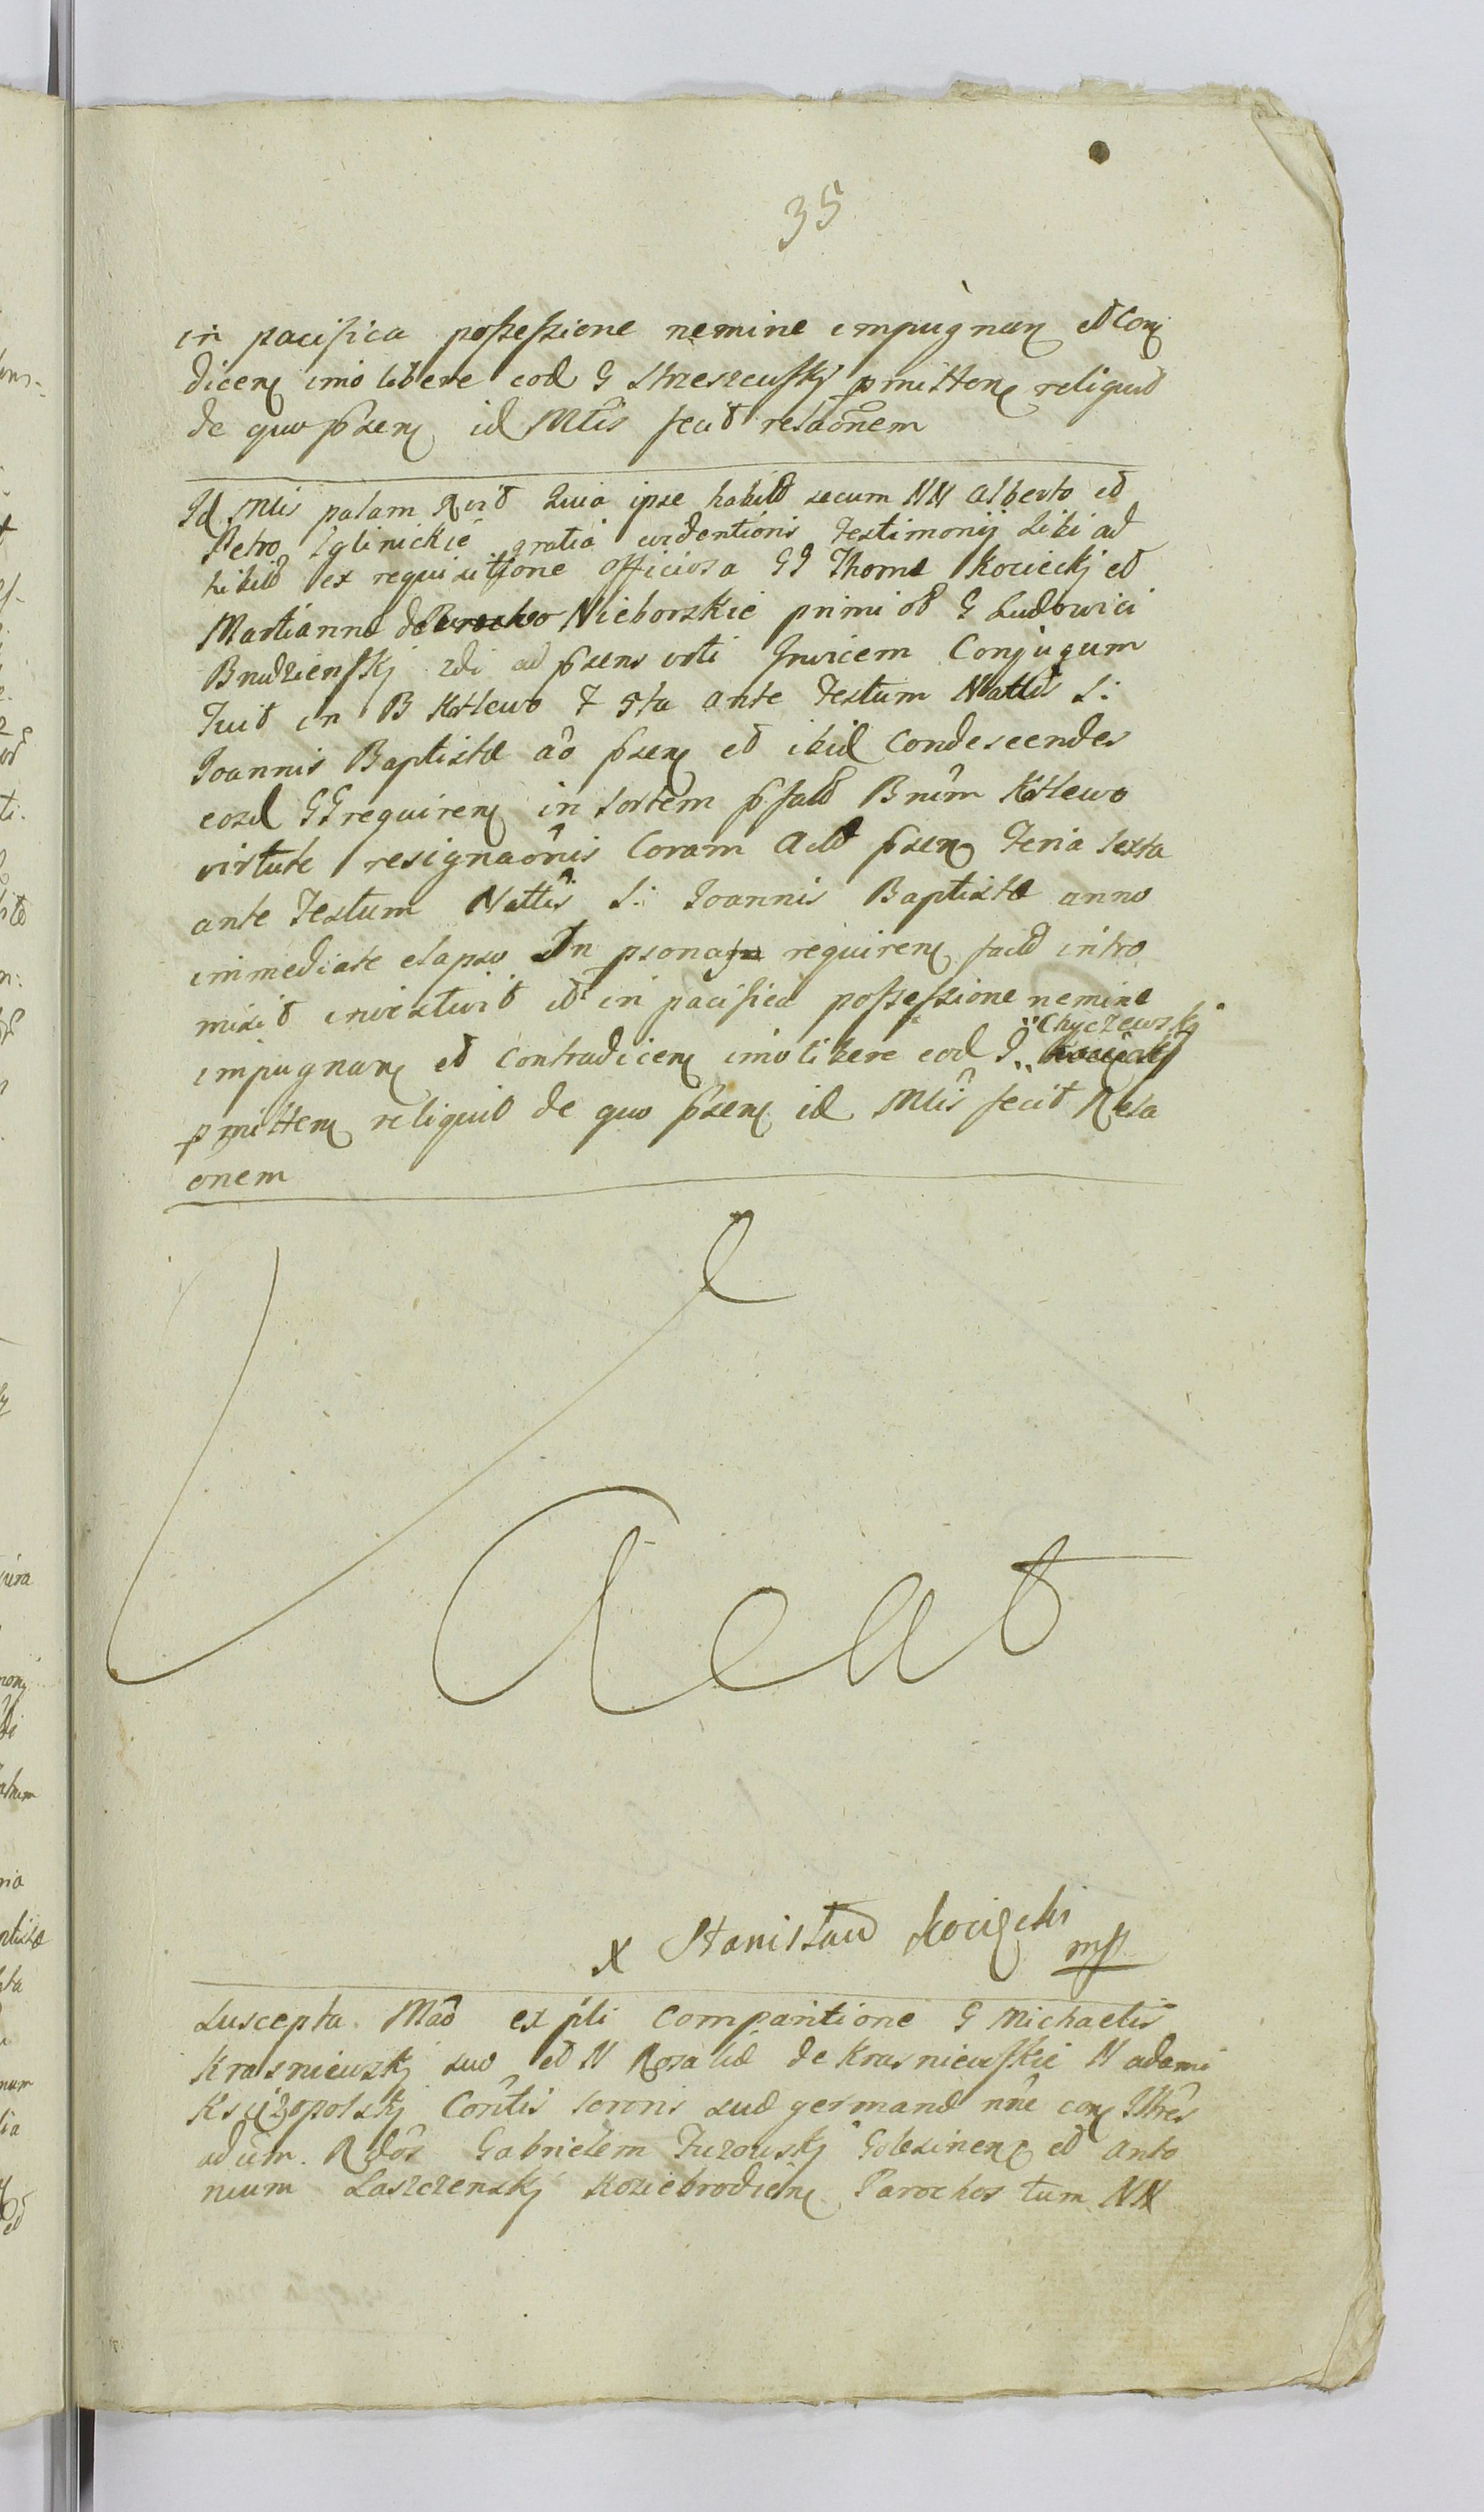 35
in pacifica possessione nemine impugnan et Con
dicen imo libere eod G Strzeszewskj pmitten reliquit
de quo psen id Mlis fecit relaonem
Id Mlis palam Rvit Quia ipse habits secum NN Alberto et
Petro Iglinickie gratia evidentioris Testimonij sibi ad
hibits ex requisitione officiosa GG Thomæ Kocieckj et
Martiannæ de Nieborskie primi olt G Ludovici
Brudzienskj 2di ad psens voti Invicem Conjugum
Fuit in B Kotlewo F 5ta ante Festum Nattis S:
Joannis Baptistæ ao psen et ibid Condescendes
eosd GG requiren in sortem pfats Brum Kotlewo
virtute resignaonis Coram Acts psen Feria sexta
ante Festum Nattis S: Joannis Baptistæ anno
immediate elapso In psona requiren fact intro
misit investivit et in pacifica possessione nemine
impugnan et Contradicen imo libere eod G Chyczewskj
pmitten reliquit de quo psen id Mlis fecit Rela
onem
Vacat
X Stanisław Kocięcki
mp
Suscepta Mao ex pli Comparitione G Michaelis
Krasniewskj suo et N Rosaliæ de Krasniewskie N adami
Księzopolskj Contis sororis suæ germanæ nne con Iltres
adum. Rdos Gabrielem Juzowskj Golesinen et Anto
nium Laszczenskj Koziebrodien Parochos tum NN